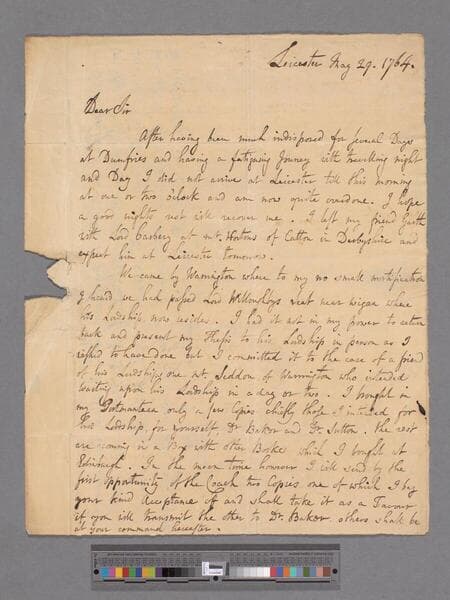 Leicester May 29. 1764.
Dear Sir
After having been much indisposed for several Days
at Dumfries and having a fatiguing Journey with travelling night
and Day I did not arrive at Leicester till this morning
at one or two o'clock and am now quite overdone. I hope
a good nights rest will recover me. I left my friend
with Lord Carbery at Mr. Hortons of Catton in Derbyshire and
expect him at Leicester tomorrow.
We came by Warrington where to my no small mortification
I heard we had passed Lord Willoughbys seat near Wigan where
his Lordship now resides. I had it not in my power to return
back and present my Thesis to his Lordship in person as I
wished to have done but I committed it to the care of a friend
of his Lordships one Mr. Seddon of Warrington who intended
waiting upon his Lordship in a day or two. I brought in
my Portmanteau only a few Copies chiefly those I intended for
his Lordship, for yourself, Dr Baker and Dr. Sutton. The rest
are coming in a Box with other Books which I bought at
Edinburgh. In the mean time however I will send by the
first opportunity of the Coach two Copies one of which I beg
your kind Acceptance of and shall take it as a Favour
if you will transmit the other to Dr. Baker. others shall be
at your command hereafter.